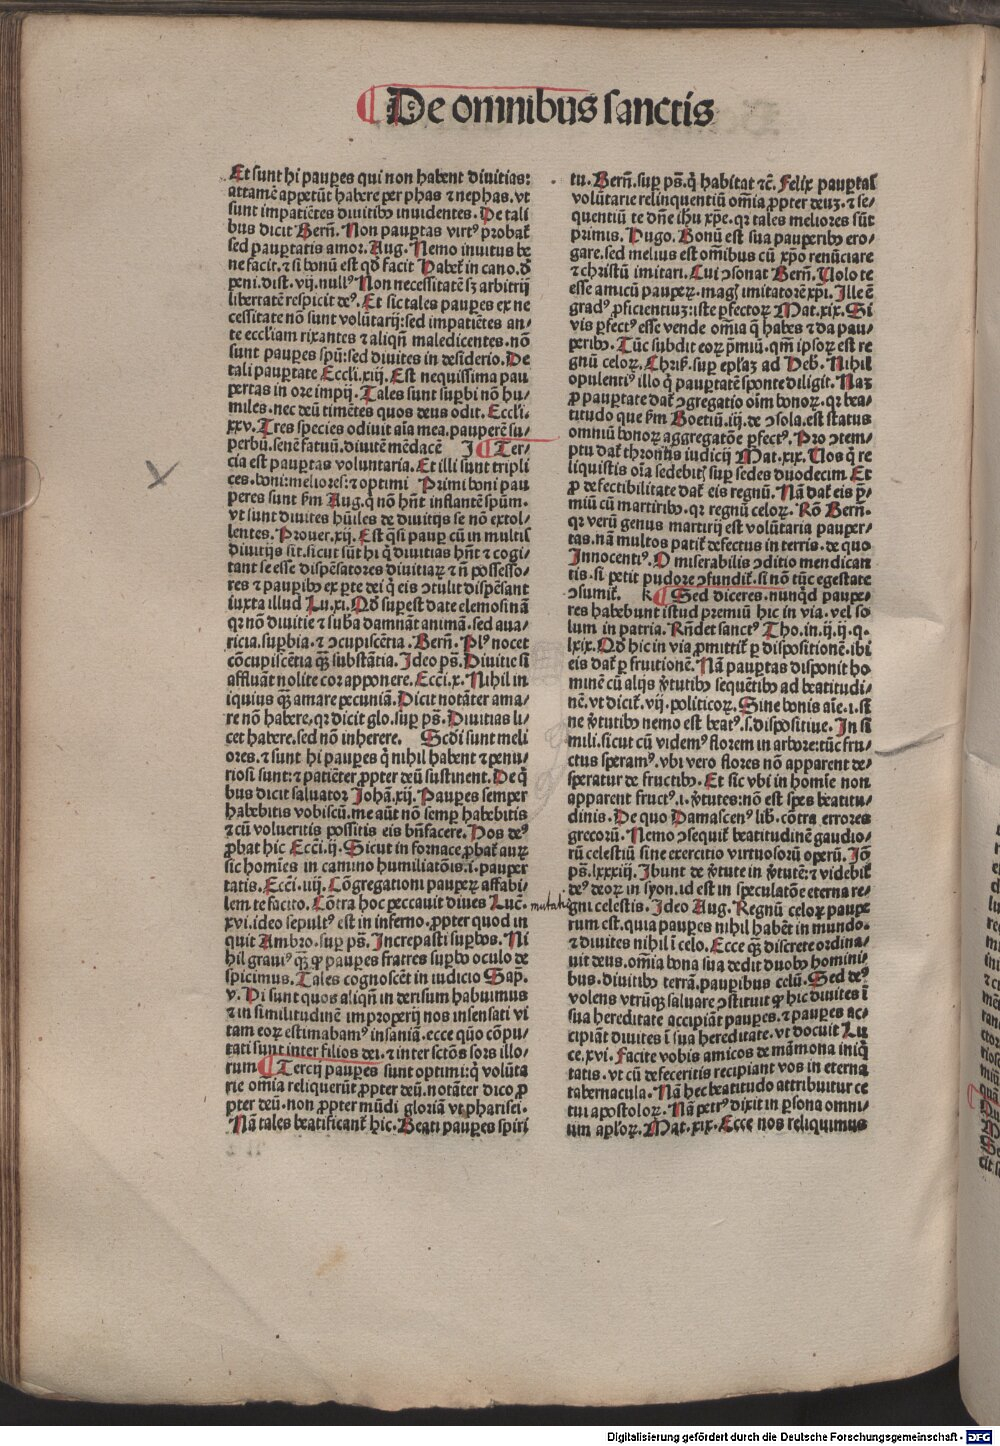 De omnibus sanctis
Et sunt hi paupes qui non habent divitias:
attamē appetūt habere per phas ⁊ nephas. vt
sunt impatiētes divitibꝰ inuidentes. De tali
bus dicit Bern̄. Non paupertas virtꝰ probat̄
sed paupertatis amor. Aug. Nemo inuitus be
ne facit. ⁊ si bonū est qd̓ facit Habet̄ in cano. d̓
peni. dist. vij. nullꝰ Non necessitatē sꝫ arbitrij
libertatē respicit deꝰ. Et sic tales paupes ex ne
cessitate nō sunt volūtarij: sed impatiētes an/
te eccl̄iam rixantes ⁊ aliqn̄ maledicentes. nō
sunt paupes spū: sed divites in desiderio. De
tali paupertate Eccl̄i. xiij. Est nequissima pau
pertas in ore impij. Tales sunt supbi nō hu/
miles. nec deū timētes quos deus odit. Eccl̄i.
xxv. Tres species odiuit aīa mea. pauperē su/
perbū. senē fatuū. divitē mēdacē J Ter/
cia est paupertas voluntaria. Et illi sunt tripli
ces. boni: meliores: ⁊ optimi Primi boni pau
peres sunt s̄m Aug. q̄ nō hn̄t inflantē spūm.
vt sunt divites hūiles de divitijs se nō extol/
lentes. Prouer. xij. Est q̄si paup cū in multis
divitijs sit. sicut sūt hi q̄ divitias hn̄t ⁊ cogi/
tant se esse dispēsatores divitiaꝝ ⁊ n̄ possesso/
res ⁊ paupibꝰ ex pte dei q̄ eis ꝯtulit dispēsant
iuxta illud Lu. xi. Qd̓ supest date elemosinā
qꝛ nō divitie ⁊ suba damnāt animā. sed aua/
ricia. supbia. ⁊ ꝯcupiscētia. Bern̄. Plꝰ nocet
cōcupiscētia qꝫ substātia. Ideo ps̄. Divitie si
affluāt nolite cor apponere. Ecc̄i. x. Nihil in
iquius qꝫ amare pecuniā. Dicit notāter ama/
re nō habere. qꝛ dicit glo. sup ps̄. Divitias li/
cet habere. sed nō inherere. Scd̓i sunt meli
ores. ⁊ sunt hi paupes q̄ nihil habent ⁊ penu/
riosi sunt: ⁊ patiēter ꝓpter deū sustinent. De q̄
bus dicit saluator Johā. xij. Paupes semper
habebitis vobiscū. me aūt nō semp habebitis
⁊ cū volueritis possitis eis bn̄facere. Hos deꝰ
ꝓbat hic Ecc̄i. ij. Sicut in fornace ꝓbat̄ auꝝ
sic homīes in camino humiliatōis. i. pauper
tatis. Ecc̄i. iiij. Cōgregationi paupeꝝ affabi/
lem te facito. Cōtra hoc peccauit diues Luc̄.
xvi. ideo sepultꝰ est in inferno. ꝓpter quod in
quit Ambro. sup ps̄. Increpasti supbos. Ni
hil grauiꝰ qꝫ ꝙ paupes fratres supbo oculo de
spicimus. Tales cognoscēt in iudicio Sap̄.
v. Hi sunt quos aliqn̄ in derisum habuimus
⁊ in similitudinē improperij nos insensati vi
tam eoꝝ estimabamꝰ insaniā. ecce quō cōpu/
tati sunt inter filios dei. ⁊ inter sctōs sors illo/
rum Tercij paupes sunt optimi: q̄ volūta
rie omīa reliquerūt ꝓpter deū. notāter dico ꝓ
pter deū. non ꝓpter mūdi gloriā vt pharisei.
Nā tales beatificant̄ hic. Beati paupes spiri
mutatꝰ
tu. Bern̄. sup ps̄. q̄ habitat ⁊c̄. Felix paupertas
volūtarie relinquentiū om̄ia ꝓpter deuꝫ. ⁊ se/
quentiū te dn̄e ihū xp̄e. qꝛ tales meliores sūt
primis. Hugo. Bonū est sua pauperibꝰ ero/
gare. sed melius est om̄ibus cū xp̄o renūciare
⁊ christū imitari. Cui ꝯsonat Bern̄. Nolo te
esse amicū paupeꝝ. magꝭ imitatorē xp̄i. Ille ē
gradꝰ ꝓficientiuꝫ: iste pfectoꝝ Mat. xix. Si
vis pfectꝰ esse vende om̄ia q̄ habes ⁊ da pau/
peribꝰ. Tūc subdit eoꝝ p̄miū. qm̄ ipsoꝝ est re
gnū celoꝝ. Chris̄. sup ep̄laꝫ ad Heb̄. Nihil
opulentiꝰ illo q̄ paupertatē sponte diligit. Naꝫ
ꝓ paupertate dat̄ ꝯgregatio oīm bonoꝝ. qꝛ bea/
titudo que s̄m Boetiū. iij. de ꝯsola. est status
omniū bonoꝝ aggregatōe pfectꝰ. Pro ꝯtem/
ptu dat̄ thronꝰ iudicij Mat. xix. Vos q̄ re
liquistis oīa sedebitꝭ sup sedes duodecim. Et
ꝓ defectibilitate dat̄ eis regnū. Nā dat̄ eis p̄/
miū cū martiribꝰ. qꝛ regnū celoꝝ. Rō Bern̄.
qꝛ verū genus martirij est volūtaria pauper/
tas. nā multos patit̄ defectus in terris. de quo
Innocentiꝰ. O miserabilis ꝯditio mendican
tis. si petit pudore ꝯfundit̄. si nō tūc egestate
ꝯsumit̄. K Sed diceres. nunqd̓ paupe/
res habebunt istud premiū hic in via. vel so
lum in patria. Rn̄det sanctꝰ Tho. in. ij. ij. q.
lxix. Qd̓ hic in via ꝓmittit̄ p dispositionē. ibi
eis dat̄ p fruitionē. Nā paupertas disponit ho
minē cū alijs v̓tutibꝰ sequētibꝰ ad beatitudi/
nē. vt dicit̄. vij. politicoꝝ. Sine bonis aīe. i. si
ne v̓tutibꝰ nemo est beatꝰ. s. dispositiue. In si
mili. sicut cū videmꝰ florem in arbore: tūc fru/
ctus speramꝰ. vbi vero flores nō apparent de/
speratur de fructibꝰ. Et sic vbi in homīe non
apparent fructꝰ. i. v̓tutes: nō est spes beatitu/
dinis. De quo Damascenꝰ lib̓. cōtra errores
grecorū. Nemo ꝯsequit̄ beatitudinē gaudio/
rū celestiū sine exercitio virtuosorū operū. Iō
ps̄. lxxxiij. Ibunt de v̓tute in v̓tutē: ⁊ videbit̄
deꝰ deoꝝ in syon. id est in speculatōe eterna re/
gni celestis. Ideo Aug. Regnū celoꝝ paupe
rum est. quia paupes nihil habēt in mundo.
⁊ divites nihil ī celo. Ecce qꝫ discrete ordina/
uit deus. om̄ia bona sua dedit duobꝰ homini/
bus. divitibꝰ terrā. paupibus celū. Sed deꝰ
volens vtrūqꝫ saluare ꝯstituit ꝙ hic divites ī
sua hereditate accipiāt paupes. ⁊ paupes ac/
cipiāt divites ī sua hereditate. vt docuit Lu
ce. xvi. Facite vobis amicos de māmona iniq̄
tatis. vt cū defeceritis recipiant vos in eterna
tabernacula. Nā hec beatitudo attribuitur ce
tui apostoloꝝ. Nā petrꝰ dixit in psona omni/
um ap̄loꝝ. Mat. xix. Ecce nos reliquimus
Digitalisierung gefördert durch die Deutsche Forschungsgemeinschaft - DFG